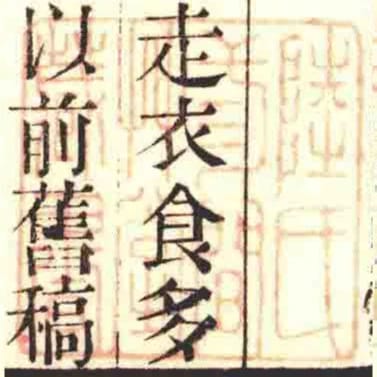 走衣食多
以前舊稿